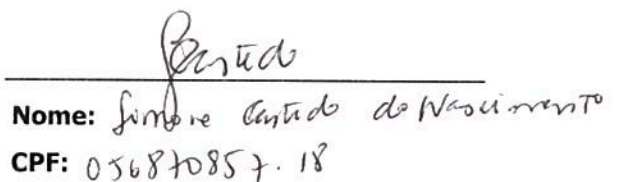 Castido
Nome: Simone Castido do Nascimento
CPF: 056870857.18